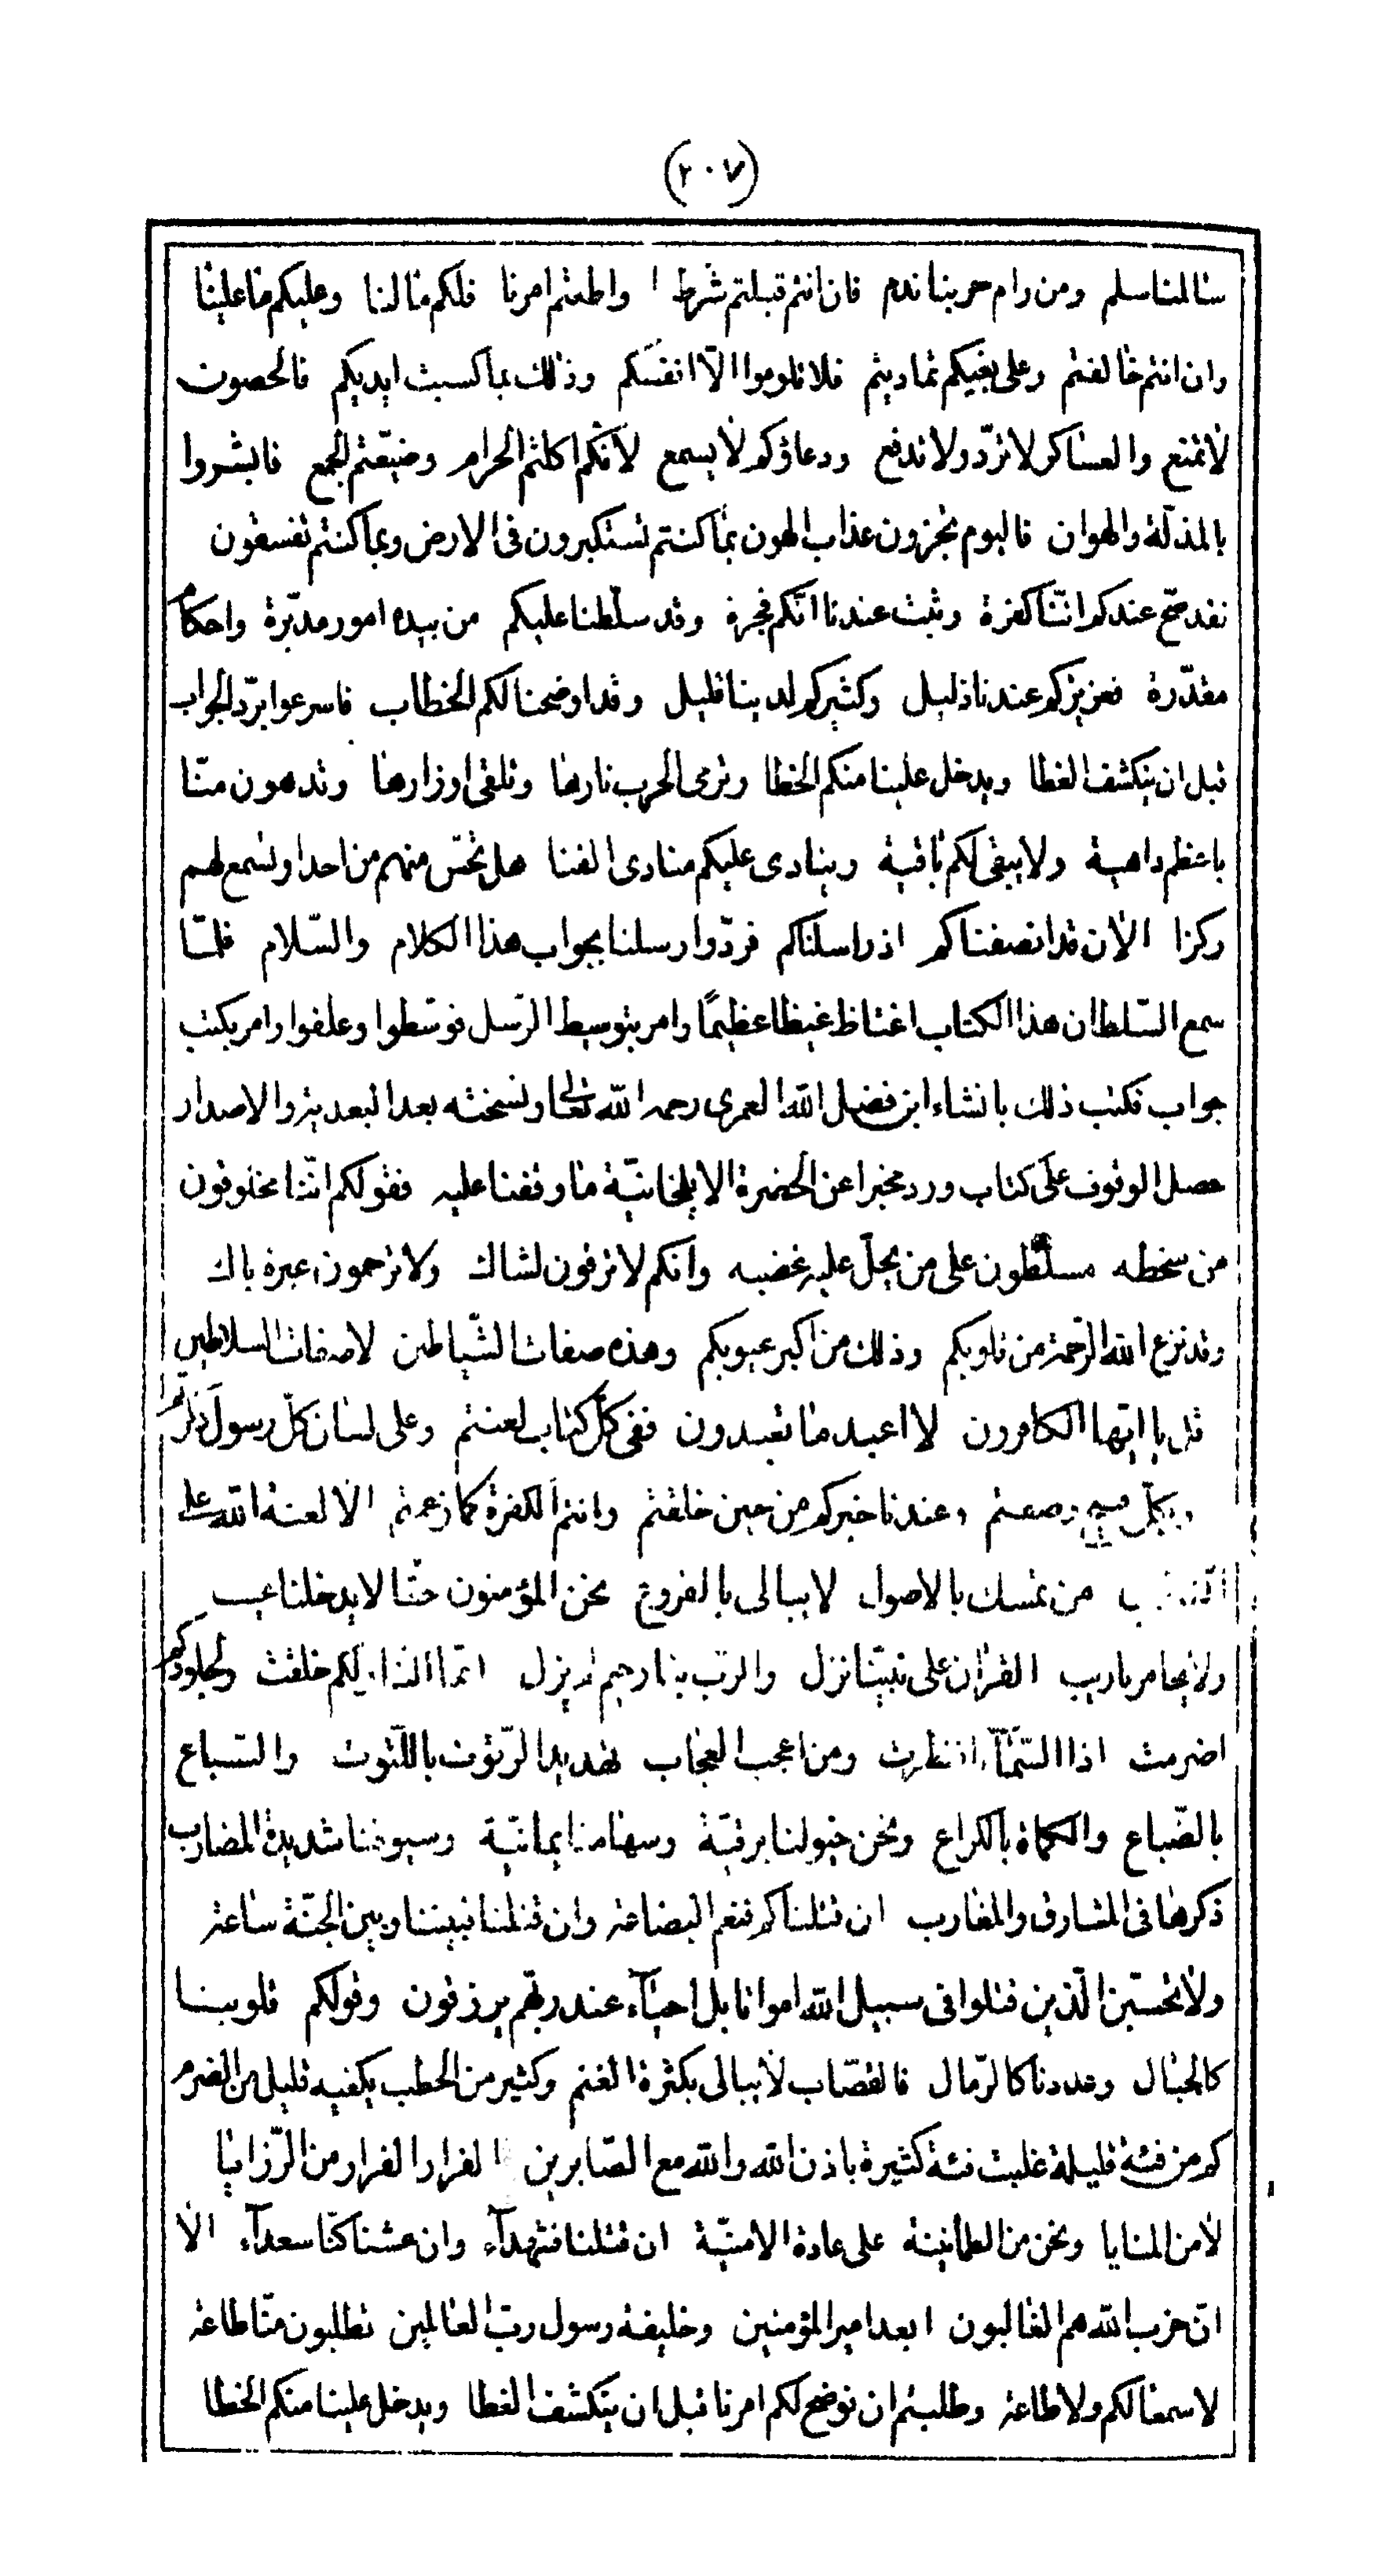 (٢٠٧)
سالمنا سلم ومن رام حربنا ندم فان انتم قبلتم شرطنا واطعتم امرنا فلكم مالنا وعليكم ما علينا
وان انتم خالفتم وعلى بغيكم تماديتم فلا تلوموا الّا انفسكم وذلك بما كسبت ايديكم فالحصون
لا تمنع والعساكر لا تردّ ولا تدفع ودعاؤكم لا يسمع لانّكم اكلتم الحرام وضيّعتم الجمع فابشروا
بالمذلّة والهوان فاليوم تجزون عذاب الهون بما كنتم تستكبرون فى الارض وبما كنتم تفسقون
فقد صحّ عندكم انّنا كفرة وثبت عندنا انّكم فجرة وقد سلّطنا عليكم من بيده امور مدبّرة واحكام
مقدّرة فعزيزكم عندنا ذليل وكثيركم لدينا قليل وقد اوضحنا لكم الخطاب فاسرعوا بردّ الجواب
قبل ان ينكشف الغطا ويدخل علينا منكم الخطا وترمى الحرب نارها وتلقى اوزارها وتدهون منّا
باعظم داهية ولا يبقى لكم باقية وينادى عليكم منادى الفنا هل تحسّ منهم من احد او تسمع لهم
ركزا الان قد انصفناكم اذ راسلناكم فردّوا رسلنا بجواب هذا الكلام والسّلام فلمّا
سمع السّلطان هذا الكتاب اغتاظ غيظا عظيمًا وامر بتوسيط الرّسل فوسّطوا وعلقوا وامر بكتب
جواب فكتب ذلك بانشاء ابن فضل الله العمرى رحمه الله تعالى ونسخته بعد البعدية والاصدار
حصل الوقوف على كتاب ورد مخبرا عن الحضرة الايلخانيّة ما وقفنا عليه فقولكم انّنا مخلوقون
من سخطه مسلّطون على من يحلّ عليه غضبه وانّكم لا ترقون لشاك ولا ترحمون عبرة باك
وقد نزع الله الرّحمة من قلوبكم وذلك من اكبر عيوبكم وهذه صفات الشّياطين لا صفات السلاطين
قل يا ايّها الكافرون لا اعبد ما تعبدون ففى كلّ كتاب لعنتم وعلى لسان كلّ رسول ذكرتم
وبكلّ قبيح وصفتم وعندنا خبركم من حين خلقتم وانتم الكفرة كما زعمتم الا لعنة الله على
من تمسك بالاصول لا يبالى بالفروع نحن المؤمنون حقّا لا يدخلنا عيب
ولا يخامرنا ريب القران على نبيّنا نزل والرّب بنا رحيم لم يزل انّما النار لكم خلقت ولجلودكم
اضرمت اذا السّماء انفطرت ومن اعجب العجاب تهديد الرّتوت باللّتوت والسّباع
بالضّباع والكماة بالكراع ونحن خيولنا برقيّة وسهامنا يمانيّة وسيوفنا شديدة المضارب
ذكرها فى المشارق والمغارب ان قتلناكم فنعم البضاعة وان قتلنا فبيننا وبين الجنّة ساعة
ولا تحسبنّ الّذين قتلوا فى سبيل الله امواتا بل احياء عند ربّهم يرزقون وقولكم قلوبنا
كالجبال وعددنا كالرّمال فالقصّاب لا يبالى بكثرة الغنم وكثير من الحطب يكفيه قليل من الضرم
كم من فئة قليلة غلبت فئة كثيرة باذن الله والله مع الصّابرين الفرار الفرار من الرّزايا
لا من المنايا ونحن من الطمأنينة على عادة الامنيّة ان قتلنا فشهداء وان عشنا كنّا سعداء الا
انّ حزب الله هم الغالبون ابعد امير المؤمنين وخليفة رسول ربّ العالمين تطلبون منّا طاعة
لا سمعا لكم ولا طاعة وطلبتم ان نوضح لكم امرنا قبل ان ينكشف الغطا ويدخل علينا منكم الخطا